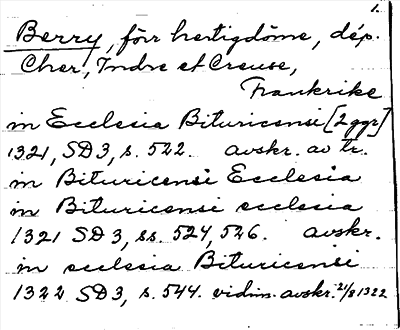 1.
Berry, förr hertigdöme, dép.
Cher, Indre et Creuse,
Frankrike
in Ecclesia Bituricensi [2 ggr]
1321, SD3, s. 522. avskr. av tr.
in Bituricensi Ecclesia
in Bituricensi ecclesia
1321 SD3, ss. 524, 526. avskr.
in ecclesia Bituricensi
1322 SD3, s. 544. vidim. avskr. 21/8 1322